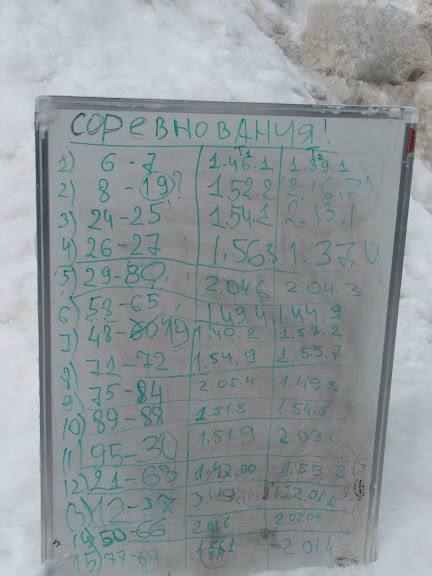 СОРЕВНОВАНИЯ!
T1 T2
1) 6-7 1.46.1 1.39.1
2) 8-19? 1.52.2
3) 24-25 1.54.1 2.13.1
4) 26-27 1.56.3 1.37.4
5) 29-80 2.04.6 2.04.3
6) 58-65 1.49.4 1.44.9
7) 48- 1.40.2 1.57.2
8) 71-72 1.54.9 1.55.7
9) 75-84 2.05.4 1.49.2
10) 89-88 1.51.8 1.54.5
11) 95-30 1.51.9 2.03.0
12) 21-63 1.42.00
13) 12-37 2.01.1
14) 50-66 2.02.04
15) 77-69 2.01.4